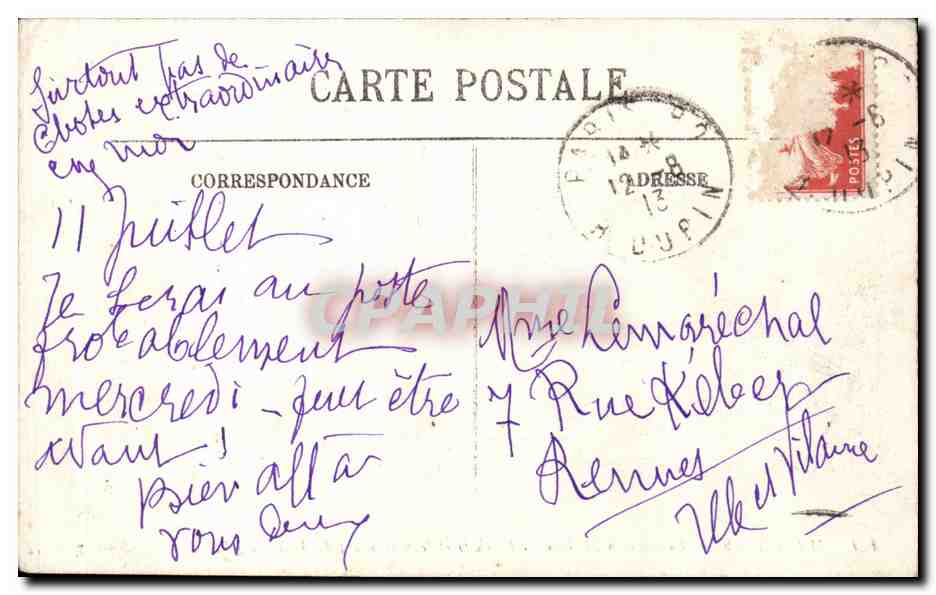 Surtout pas de
choses extraordinaires
CARTE POSTALE
CORRESPONDANCE
ADRESSE
PARIS
14 *
12 -8
13
DUPIN
12 -8
13
POSTES
11 Juillet
Je serai au poste
probablement
mercredi - peut être
avant !
Bien aff à
vous deux
Mme Lemaréchal
7 Rue Kléber
Rennes
Ille et Vilaine
CPAPHIL